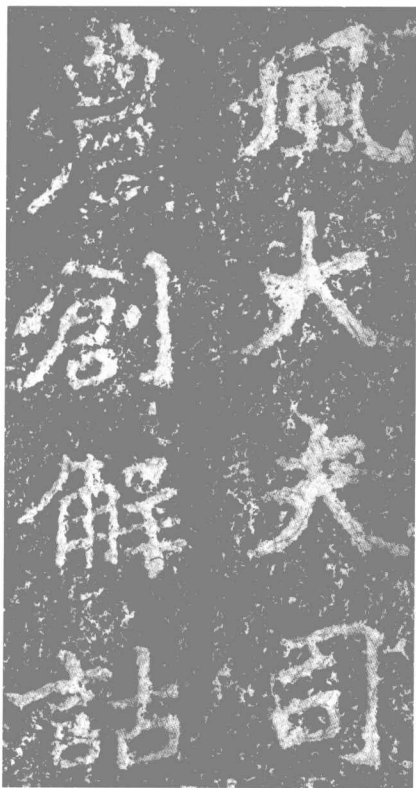 風大夫司
農創解詁